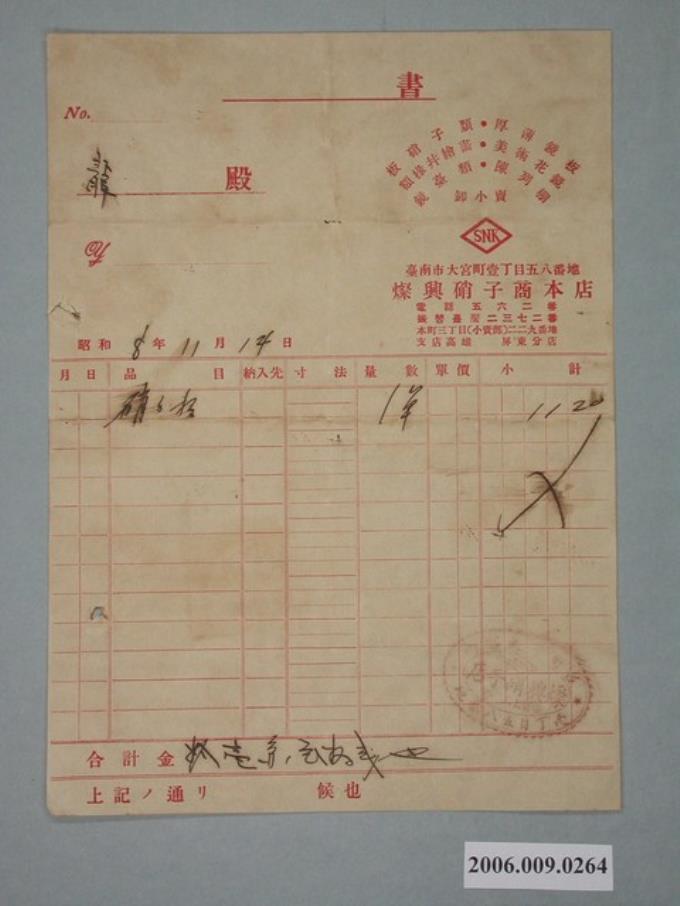 書
No.
板硝子類・厚薄鏡板
額樣并繪畵・美術花鏡
鏡臺類・陳列棚
卸小賣
殿
SNK
臺南市大宮町壹丁目五八番地
燦興硝子商本店
電話五六二番
振替臺灣二三七二番
本町三丁目(小賣部)二二九番地
支店高雄 屏東分店
昭和 8 年 11 月 14 日
月 日 品目 納入先 寸法 量數 單價 小計
硝子 1 11 20
合計金 拾壱円弐拾銭也
上記ノ通リ 候也
2006.009.0264